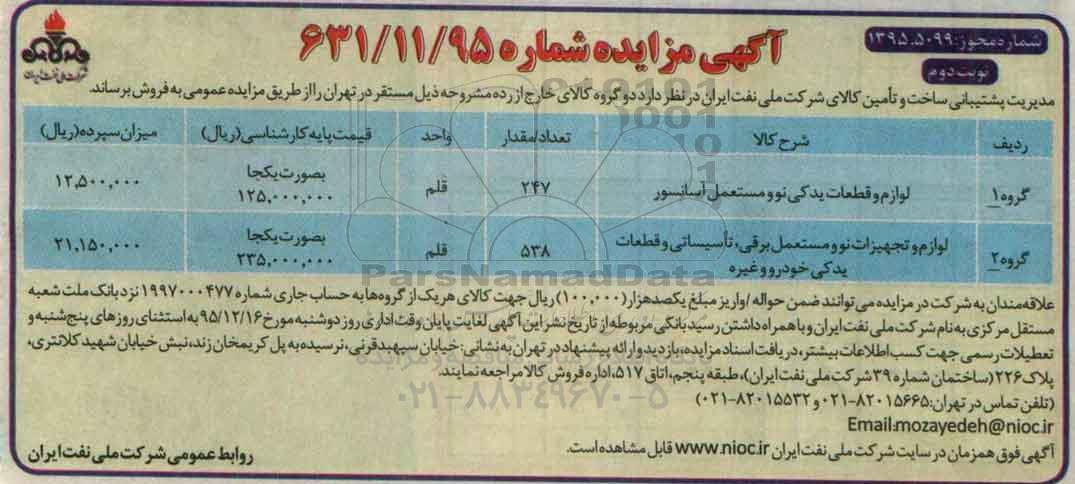 شماره مجوز: ۱۳۹۵.۵۰۹۹
نوبت دوم
آگهی مزایده شماره ۶۳۱/۱۱/۹۵
شرکت ملی نفت ایران
مدیریت پشتیبانی ساخت و تأمین کالای شرکت ملی نفت ایران در نظر دارد دو گروه کالای خارج از رده مشروحه ذیل مستقر در تهران را از طریق مزایده عمومی به فروش برساند.
ردیف شرح کالا تعداد/مقدار واحد قیمت پایه کارشناسی (ریال) میزان سپرده (ریال)
گروه ۱ لوازم و قطعات یدکی نو و مستعمل آسانسور ۲۴۷ قلم بصورت یکجا ۱۲۵,۰۰۰,۰۰۰ ۱۲,۵۰۰,۰۰۰
گروه ۲ لوازم و تجهیزات نو و مستعمل برقی، تأسیساتی و قطعات یدکی خودرو و غیره ۵۳۸ قلم بصورت یکجا ۲۳۵,۰۰۰,۰۰۰ ۲۱,۱۵۰,۰۰۰
علاقه‌مندان به شرکت در مزایده می توانند ضمن حواله /واریز مبلغ یکصدهزار (۱۰۰,۰۰۰) ریال جهت کالای هریک از گروه‌ها به حساب جاری شماره ۱۹۹۷۰۰۰۴۷۷ نزد بانک ملت شعبه
مستقل مرکزی به نام شرکت ملی نفت ایران و با همراه داشتن رسید بانکی مربوطه از تاریخ نشر این آگهی لغایت پایان وقت اداری روز دوشنبه مورخ ۹۵/۱۲/۱۶ به استثنای روزهای پنج‌شنبه و
تعطیلات رسمی جهت کسب اطلاعات بیشتر، دریافت اسناد مزایده، بازدید و ارائه پیشنهاد در تهران به نشانی: خیابان سپهبد قرنی، نرسیده به پل کریمخان زند، نبش خیابان شهید کلانتری،
پلاک ۲۲۶ (ساختمان شماره ۳۹ شرکت ملی نفت ایران)، طبقه پنجم، اتاق ۵۱۷، اداره فروش کالا مراجعه نمایند.
(تلفن تماس در تهران: ۸۲۰۱۵۶۶۵-۰۲۱ و ۸۲۰۱۵۵۳۲-۰۲۱)
Email:mozayedeh@nioc.ir
آگهی فوق همزمان در سایت شرکت ملی نفت ایران www.nioc.ir قابل مشاهده است.
روابط عمومی شرکت ملی نفت ایران
ParsNamadData
۰۲۱-۸۸۳۴۹۶۷۰-۵